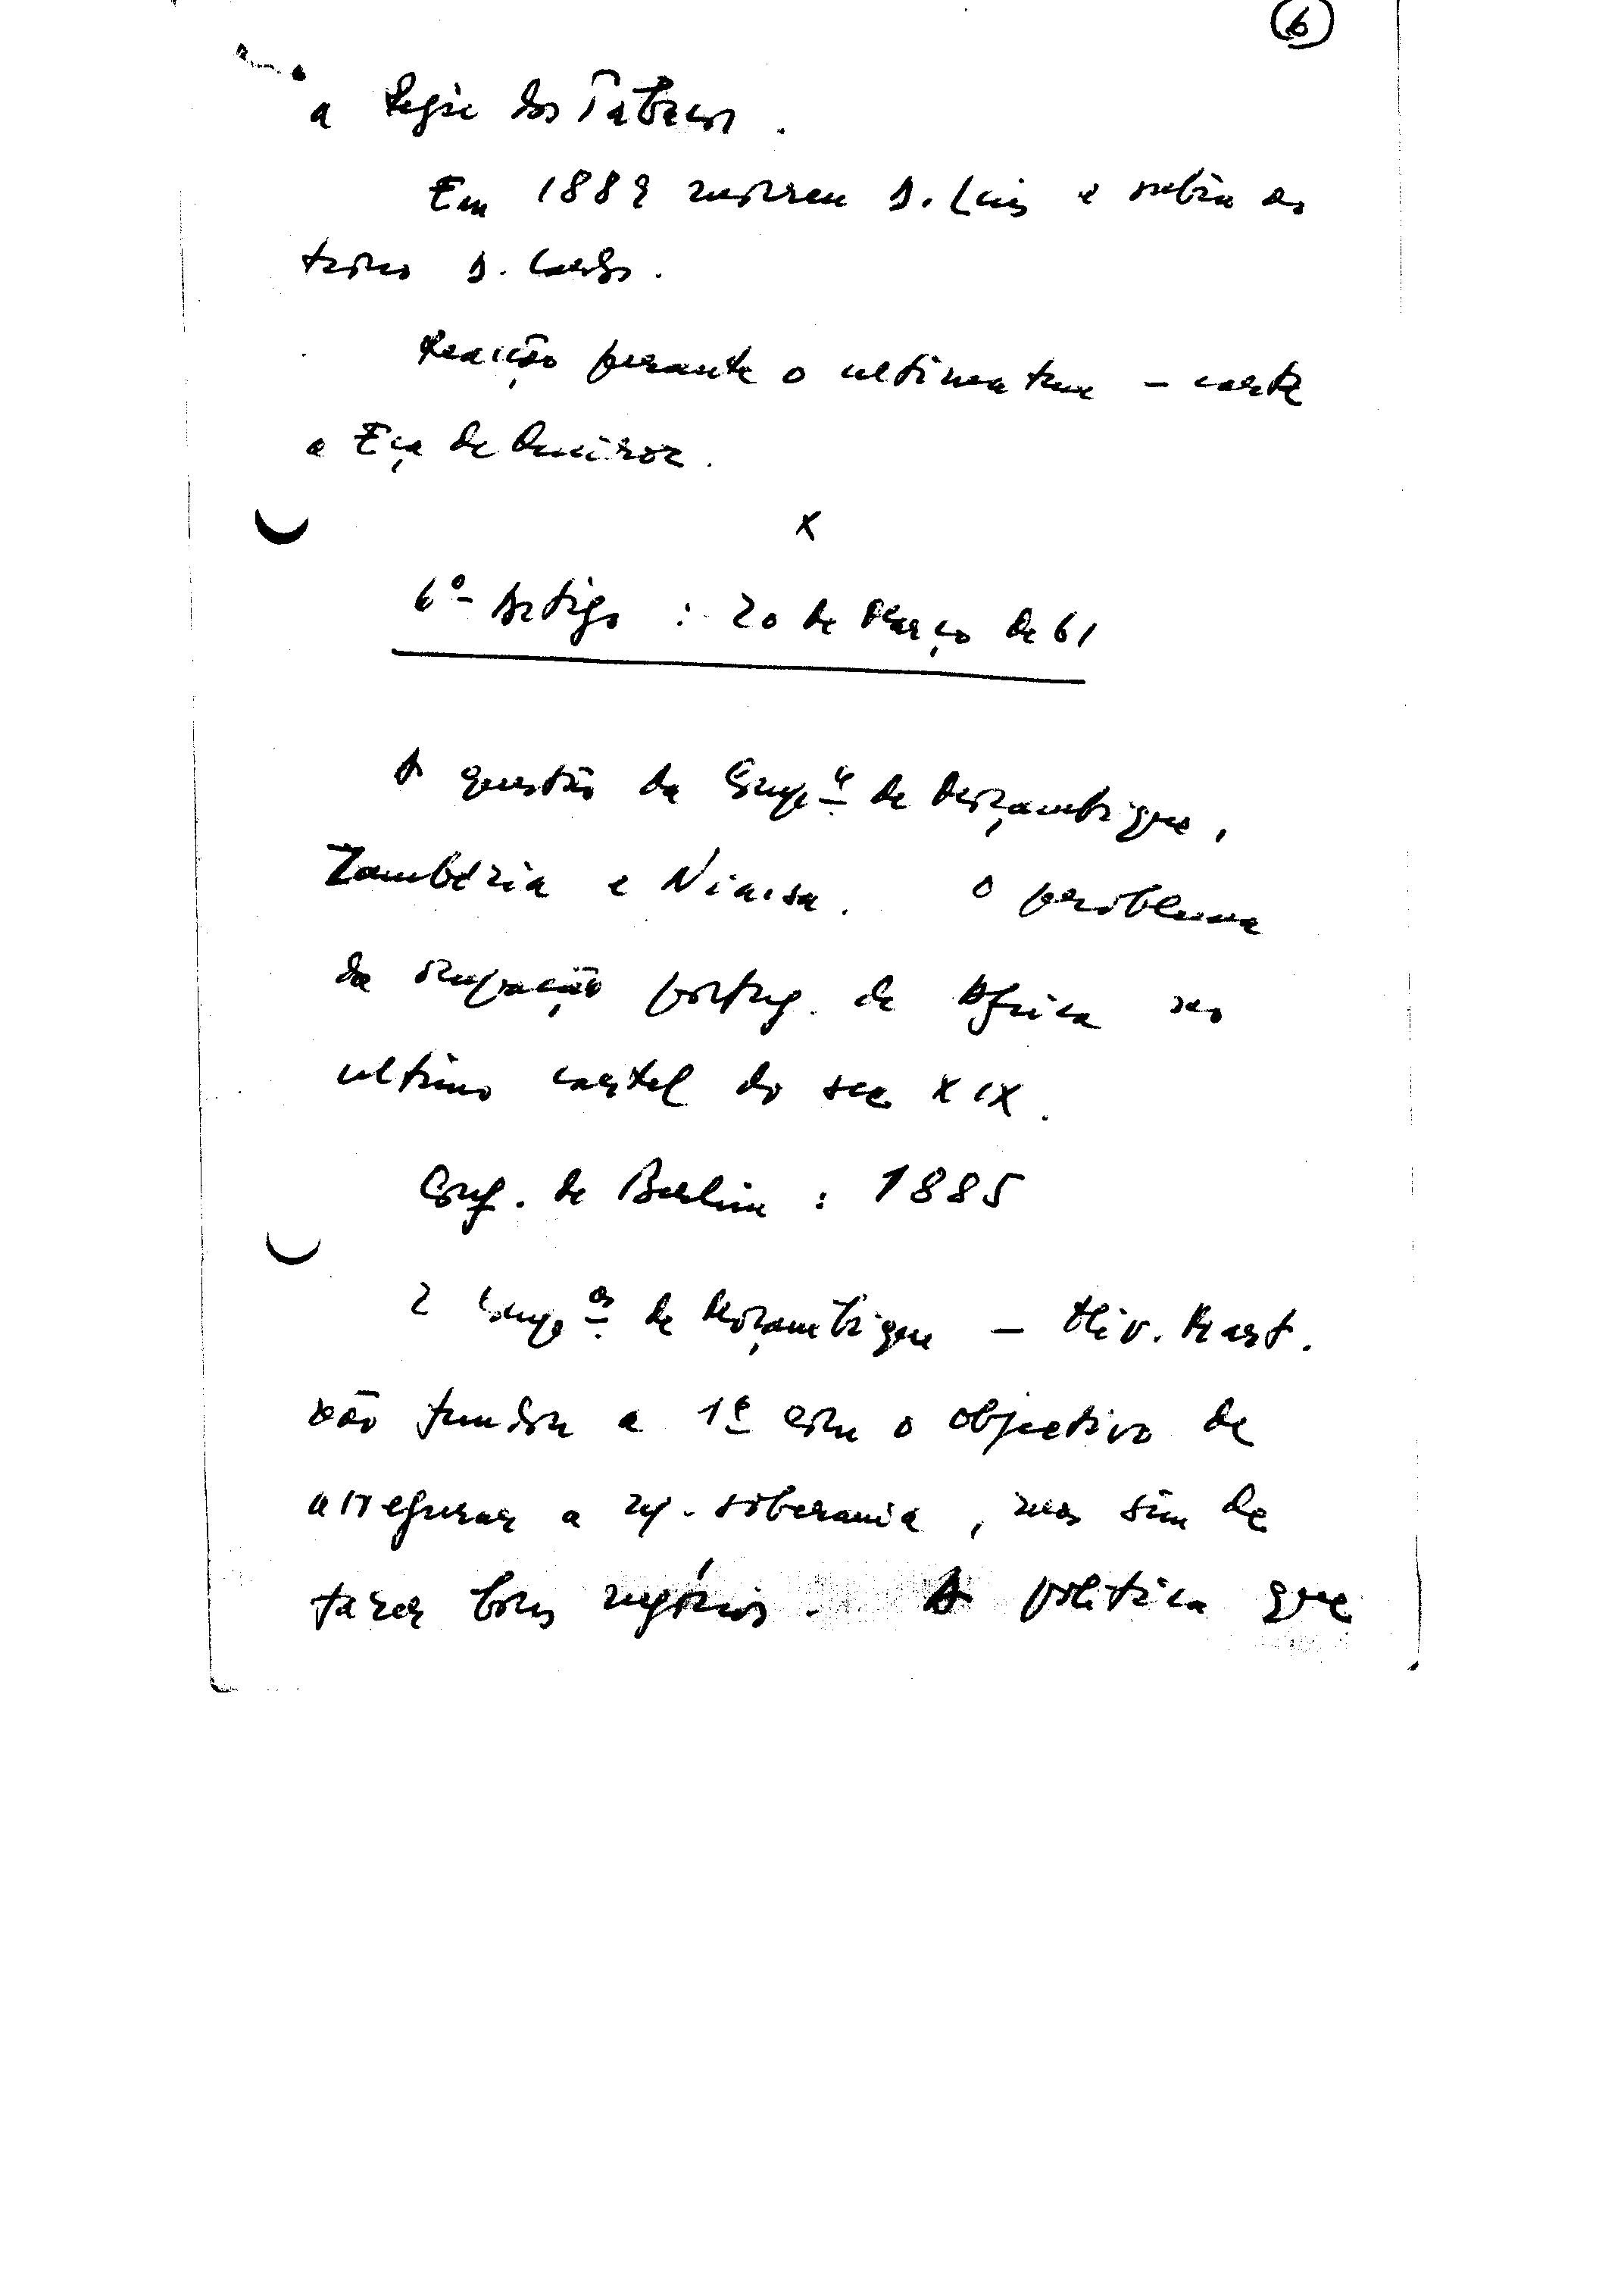 6
a Régie dos Tabacos.
Em 1889 morreu D. Luis e subiu ao
trono D. Carlos.
Reacção perante o ultimatum - carta
a Eça de Queiroz.
x
6º- Artigo : 20 de Março de 61
A questão da Compª de Moçambique,
Zambézia e Niassa. O problema
da ocupação portug. de Africa no
ultimo cartel do sec XIX.
Conf. de Berlim : 1885
2 Compªs de Moçambique - Oliv. Mart.
não fundou a 1ª com o objectivo de
assegurar a soberania, mas sim de
fazer bons negócios. A politica que